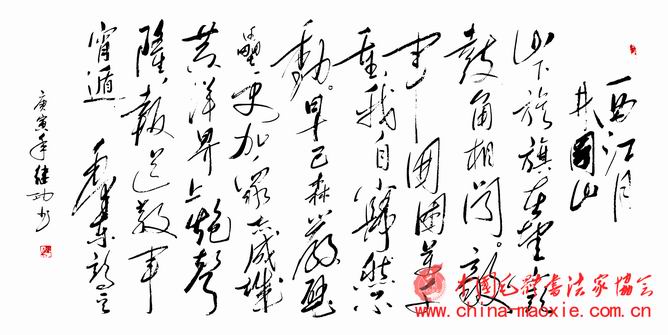 西江月
井冈山
山下旌旗在望山头
鼓角相闻。敌
军围困万千
重我自岿然不
動。早已森嚴壁
壘更加眾志成城
黄洋界上炮聲
隆報道敵軍
宵遁
庚寅年继功书
中国毛体书法家协会
www.china-maoxie.com.cn